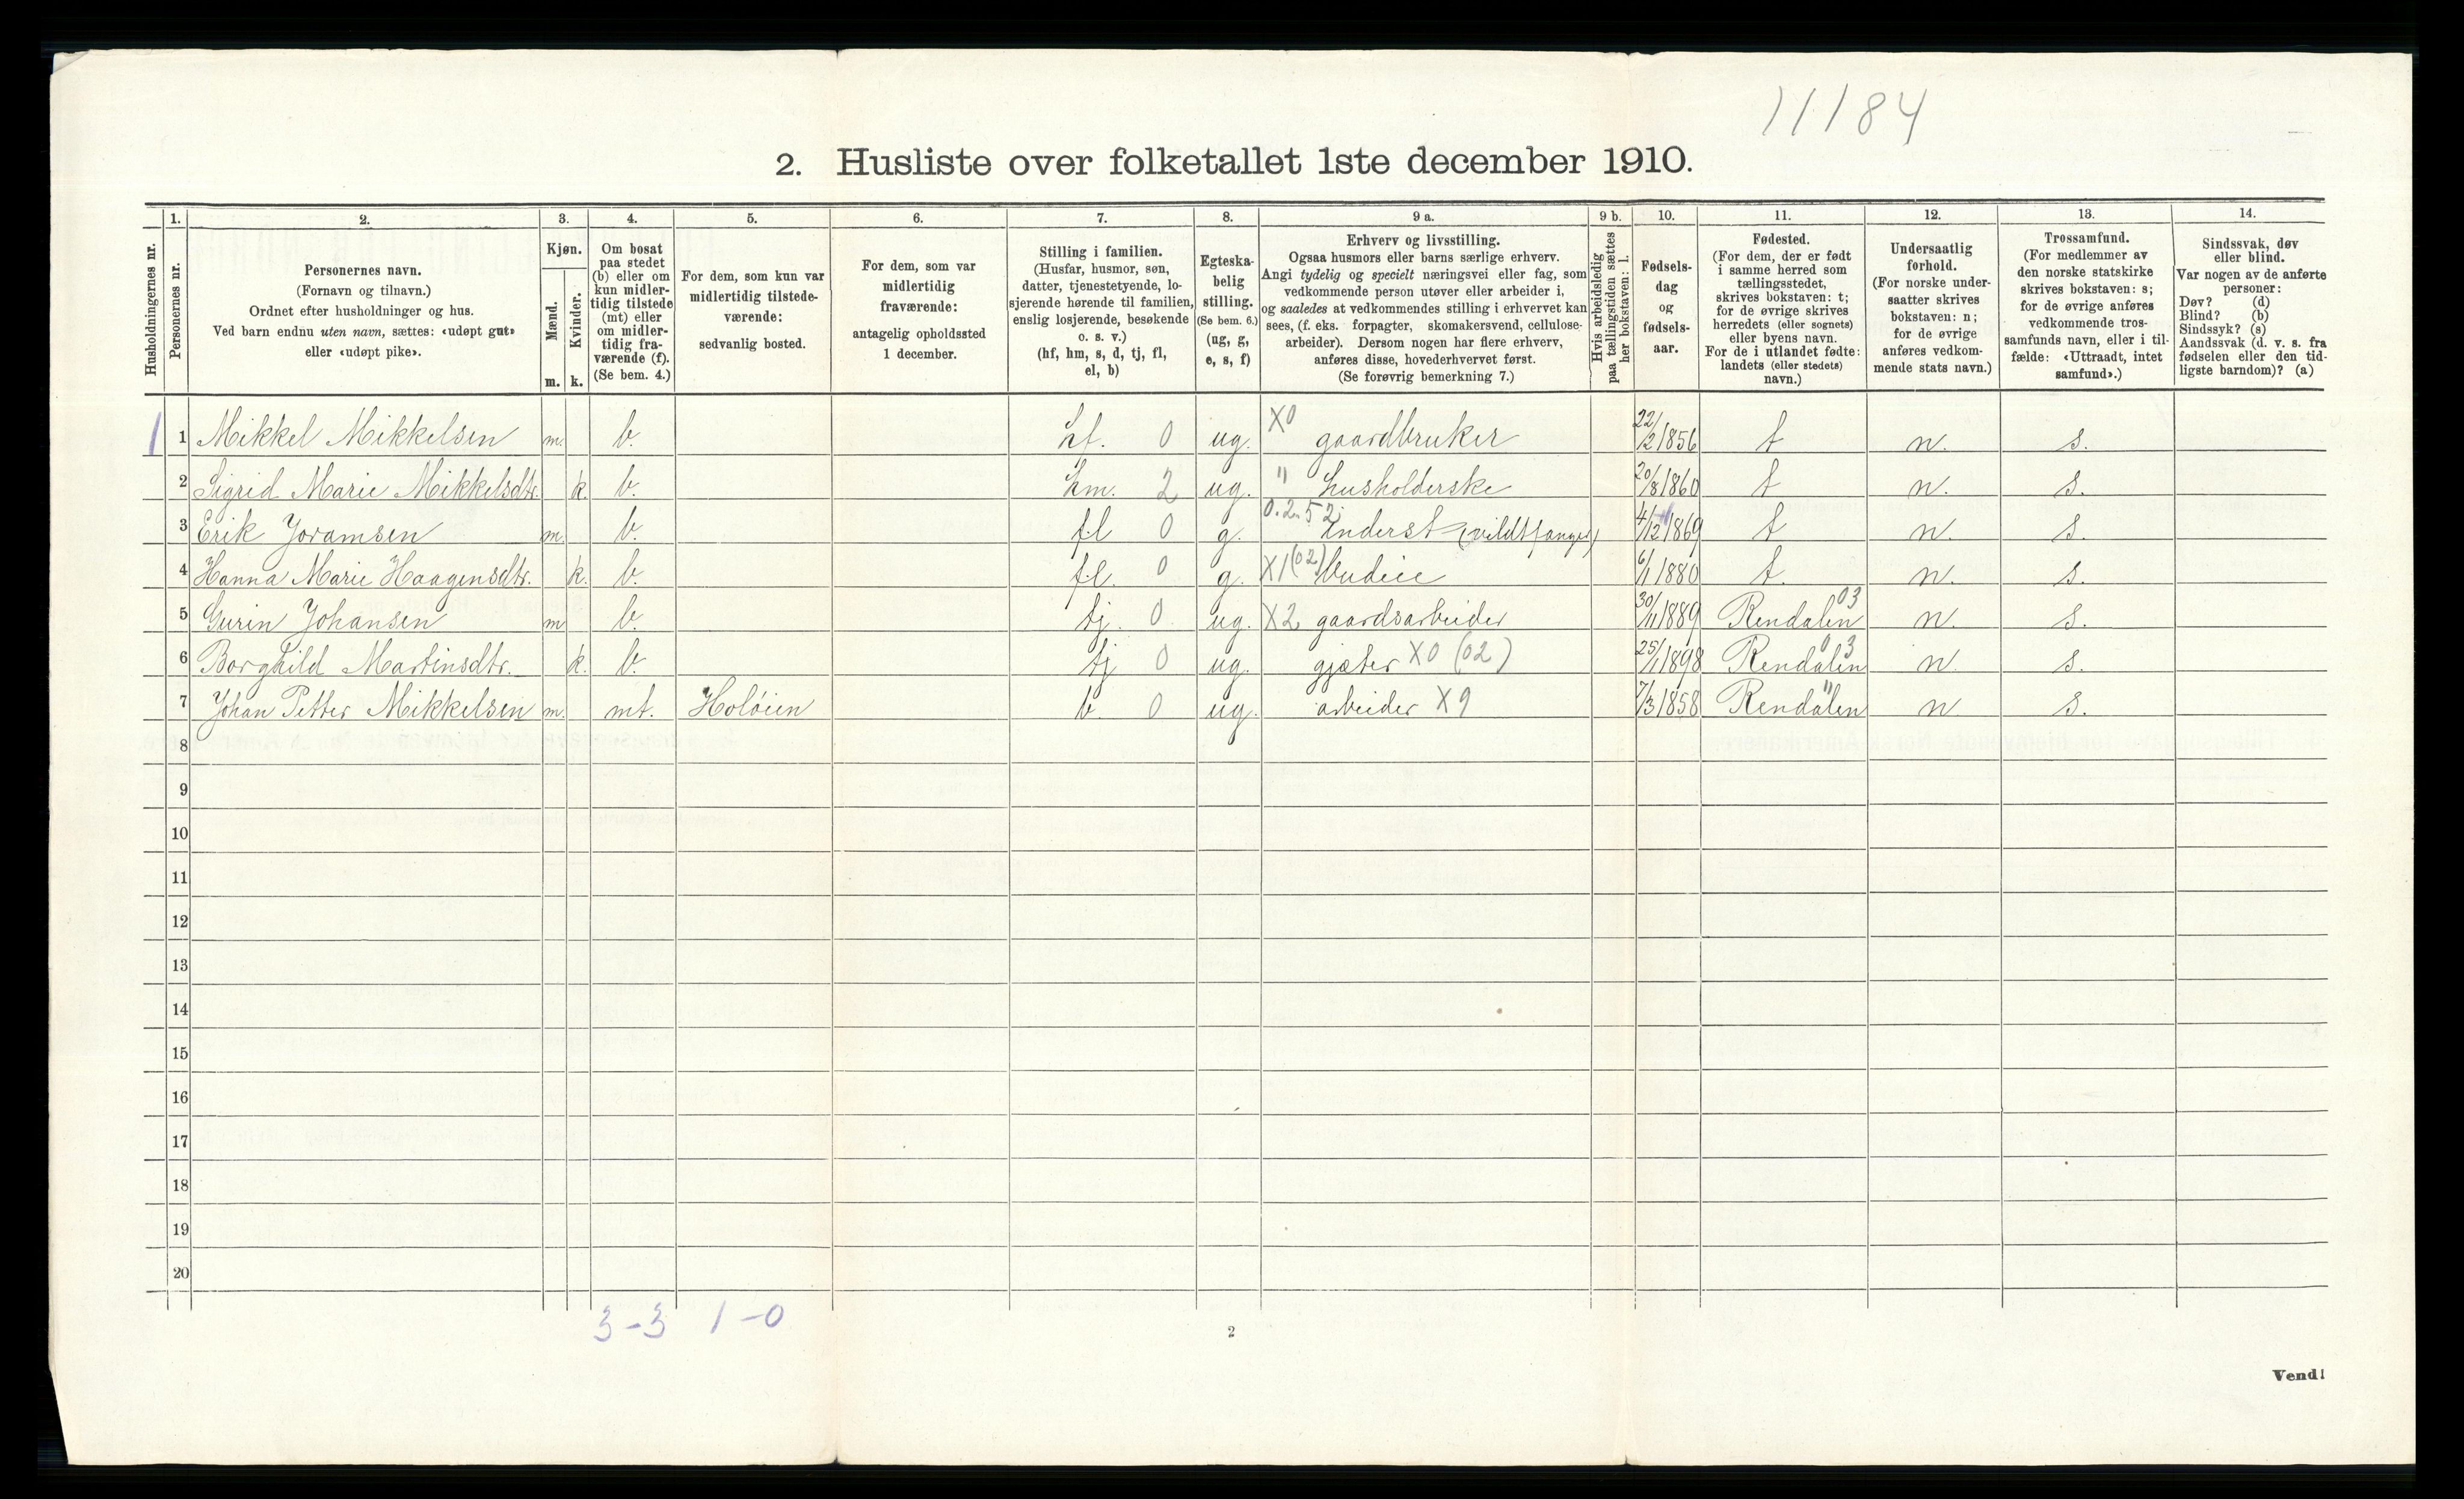 11184
2. Husliste over folketallet 1ste december 1910.
1. 2. 3. 4. 5. 6. 7. 8. 9 a. 9 b. 10. 11. 12. 13. 14.
Husholdningernes nr.
Personernes nr.
Personernes navn.
(Fornavn og tilnavn.)
Ordnet efter husholdninger og hus.
Ved barn endnu uten navn, sættes: «udøpt gut»
eller «udøpt pike».
Kjøn.
Mænd.
Kvinder.
m. k.
Om bosat
paa stedet
(b) eller om
kun midler-
tidig tilstede
(mt) eller
om midler-
tidig fra-
værende (f).
(Se bem. 4.)
For dem, som kun var
midlertidig tilstede-
værende:
sedvanlig bosted.
For dem, som var
midlertidig
fraværende:
antagelig opholdssted
1 december.
Stilling i familien.
(Husfar, husmor, søn,
datter, tjenestetyende, lo-
sjerende hørende til familien,
enslig losjerende, besøkende
o. s. v.)
(hf, hm, s, d, tj, fl,
el, b)
Egteska-
belig
stilling.
(Se bem. 6.)
(ug, g,
e, s, f)
Erhverv og livsstilling.
Ogsaa husmors eller barns særlige erhverv.
Angi tydelig og specielt næringsvei eller fag, som
vedkommende person utøver eller arbeider i,
og saaledes at vedkommendes stilling i erhvervet kan
sees, (f. eks. forpagter, skomakersvend, cellulose-
arbeider). Dersom nogen har flere erhverv,
anføres disse, hovederhvervet først.
(Se forøvrig bemerkning 7.)
Hvis arbeidsledig
paa tællingstiden sættes
her bokstaven: l.
Fødsels-
dag
og
fødsels-
aar.
Fødested.
(For dem, der er født
i samme herred som
tællingsstedet,
skrives bokstaven: t;
for de øvrige skrives
herredets (eller sognets)
eller byens navn.
For de i utlandet fødte:
landets (eller stedets)
navn.)
Undersaatlig
forhold.
(For norske under-
saatter skrives
bokstaven: n;
for de øvrige
anføres vedkom-
mende stats navn.)
Trossamfund.
(For medlemmer av
den norske statskirke
skrives bokstaven: s;
for de øvrige anføres
vedkommende tros-
samfunds navn, eller i til-
fælde: «Uttraadt, intet
samfund».)
Sindssvak, døv
eller blind.
Var nogen av de anførte
personer:
Døv? (d)
Blind? (b)
Sindssyk? (s)
Aandssvak (d. v. s. fra
fødselen eller den tid-
ligste barndom)? (a)
1 1 Mikkel Mikkelsen m. b. hf. 0 ug. X0 gaardbruker 22/2 1856 t n. s.
2 Sigrid Marie Mikkelsdtr. k. b. hm. 2 ug. " husholderske 20/8 1860 t n. s.
3 Erik Joramsen m. b. fl 0 g. 0.2.52 Inderst (vildtfanger) 4/12 1869 t n. s.
4 Hanna Marie Haagensdtr. k. b. fl. 0 g. X1 (02) budeie 6/1 1880 t. n. s.
5 Gurin Johansen m b. tj. 0 ug. X2 gaardsarbeider 30/11 1889 Rendalen 03 n. s.
6 Borghild Martinsdtr. k. b. tj 0 ug. gjæter X0 (02) 25/1 1898 Rendalen 03 n. s.
7 Johan Petter Mikkelsen m. mt. Holøien b. 0 ug. arbeider X9 7/3 1858 Rendalen " n s.
8
9
10
11
12
13
14
15
16
17
18
19
20
3-3 1-0
2
Vend!